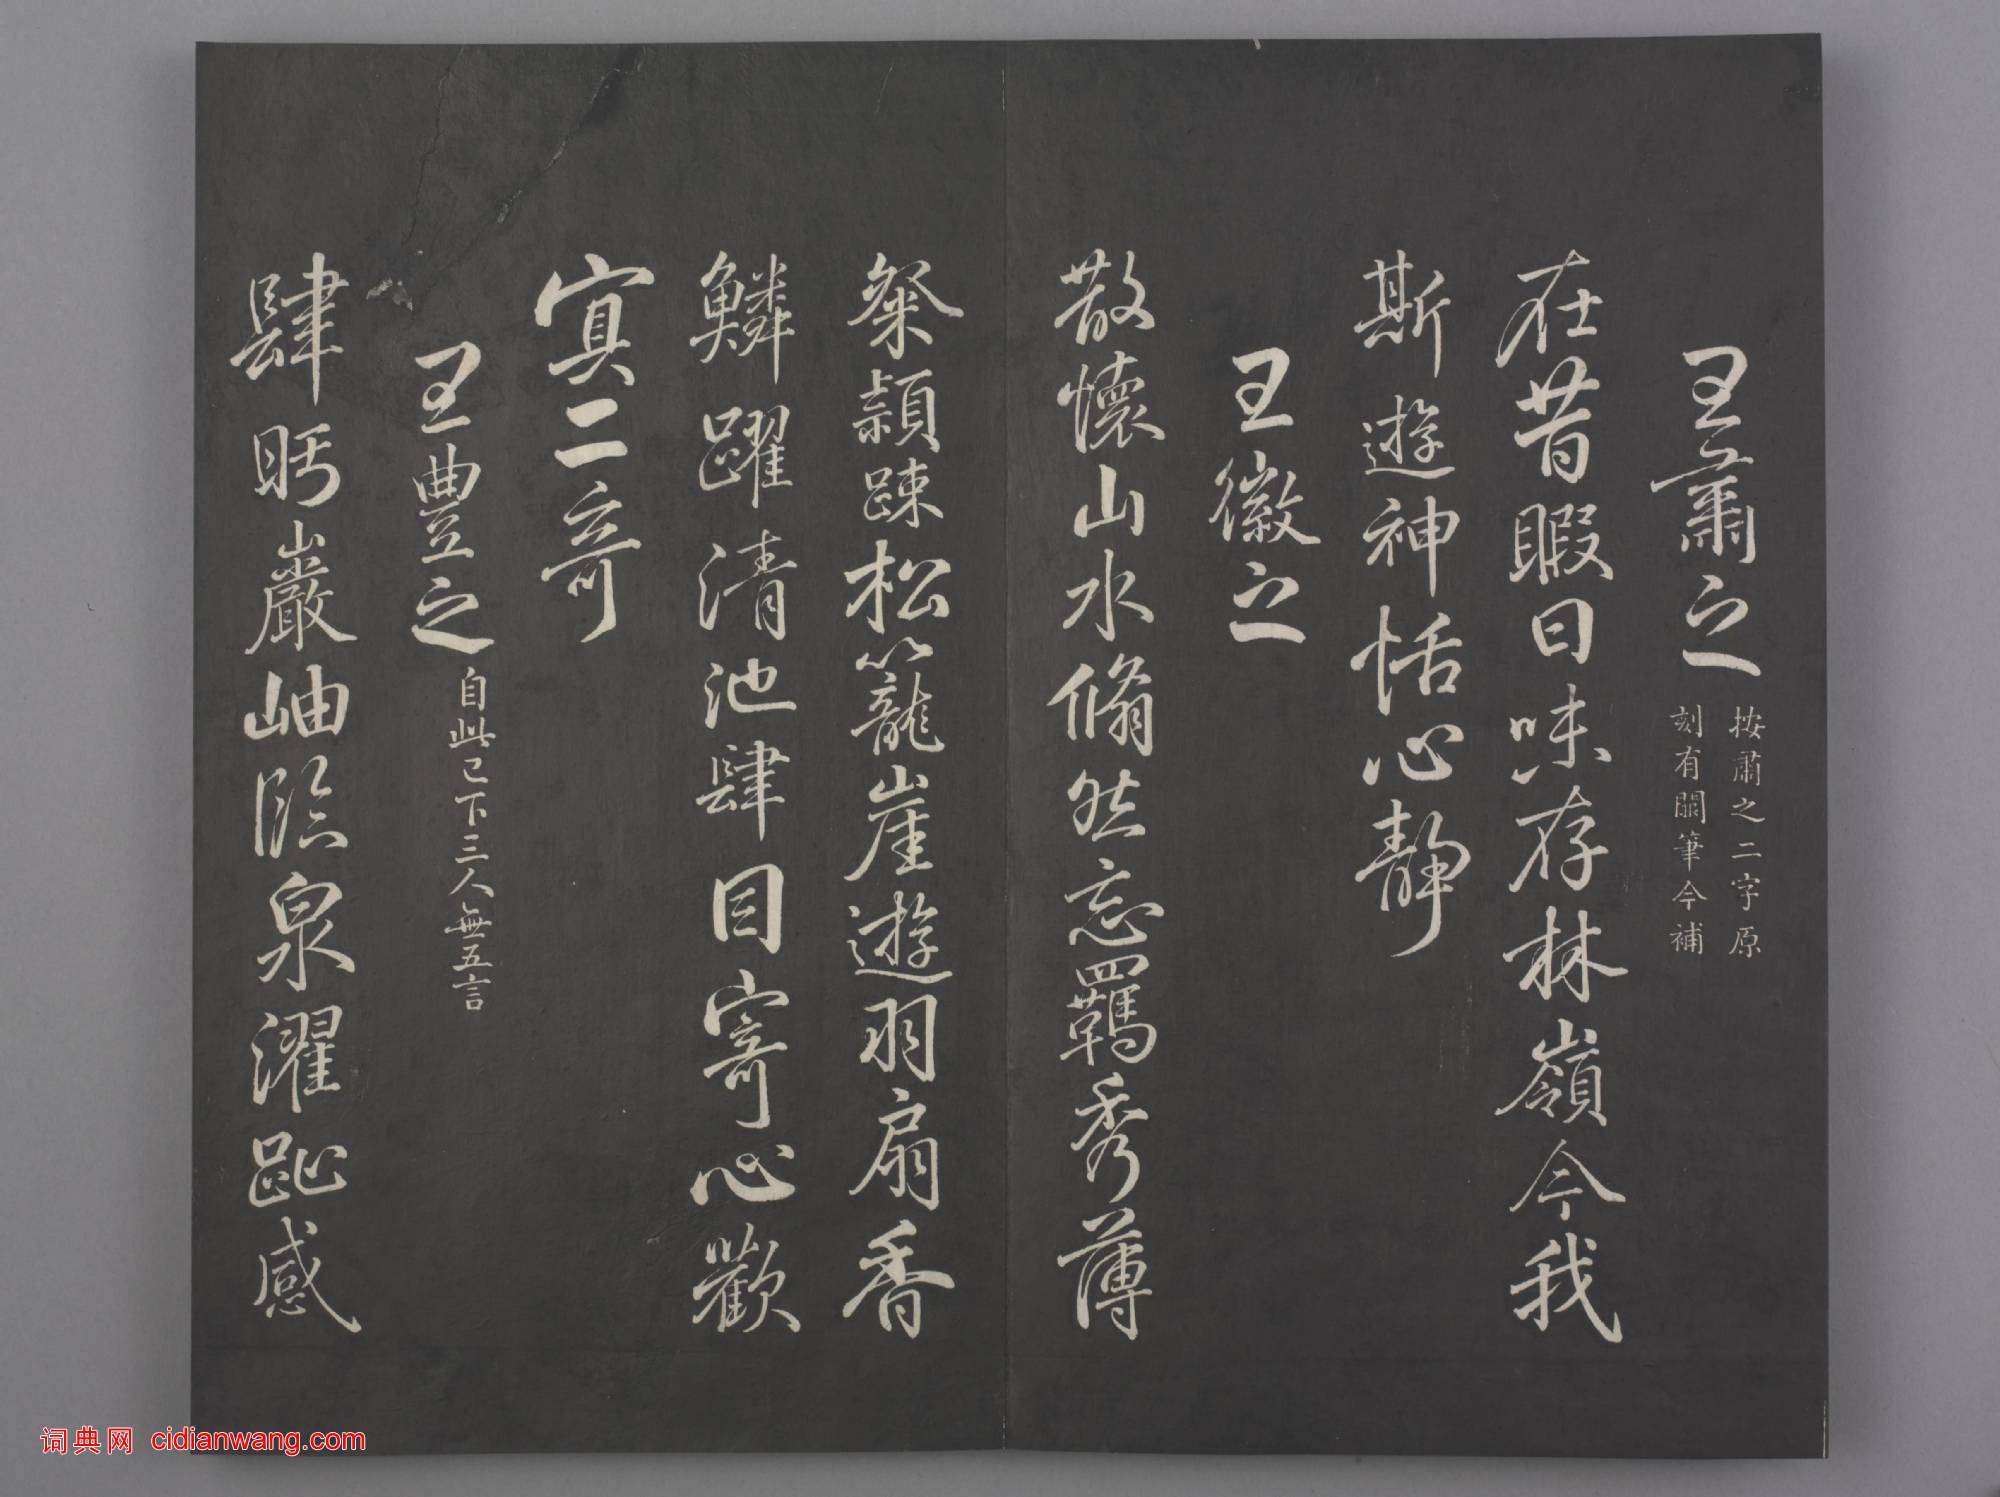 王肅之
按肅之二字原
刻有闕筆今補
在昔暇日味存林嶺今我
斯遊神恬心靜
王徽之
散懷山水翛然忘羈秀薄
粲穎疎松籠崖遊羽扇香
鱗躍清池肆目寄心歡
冥二奇
王豐之自此已下三人無五言
肆眄巖岫臨泉濯趾感
词典网 cidianwang.com